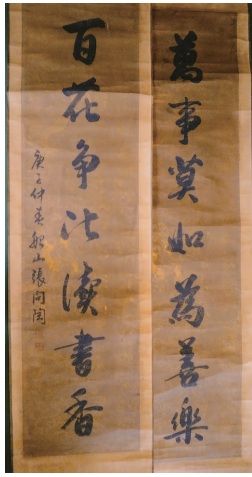 萬事莫如為善樂
百花争比讀書香
庚子仲春船山張問陶